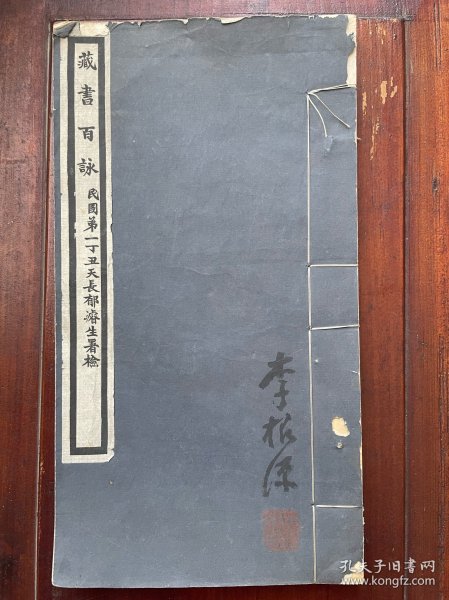 藏書百詠
民國第一丁丑天長郁濬生署檢
李根源
孔夫子旧书网
www.kongfz.com